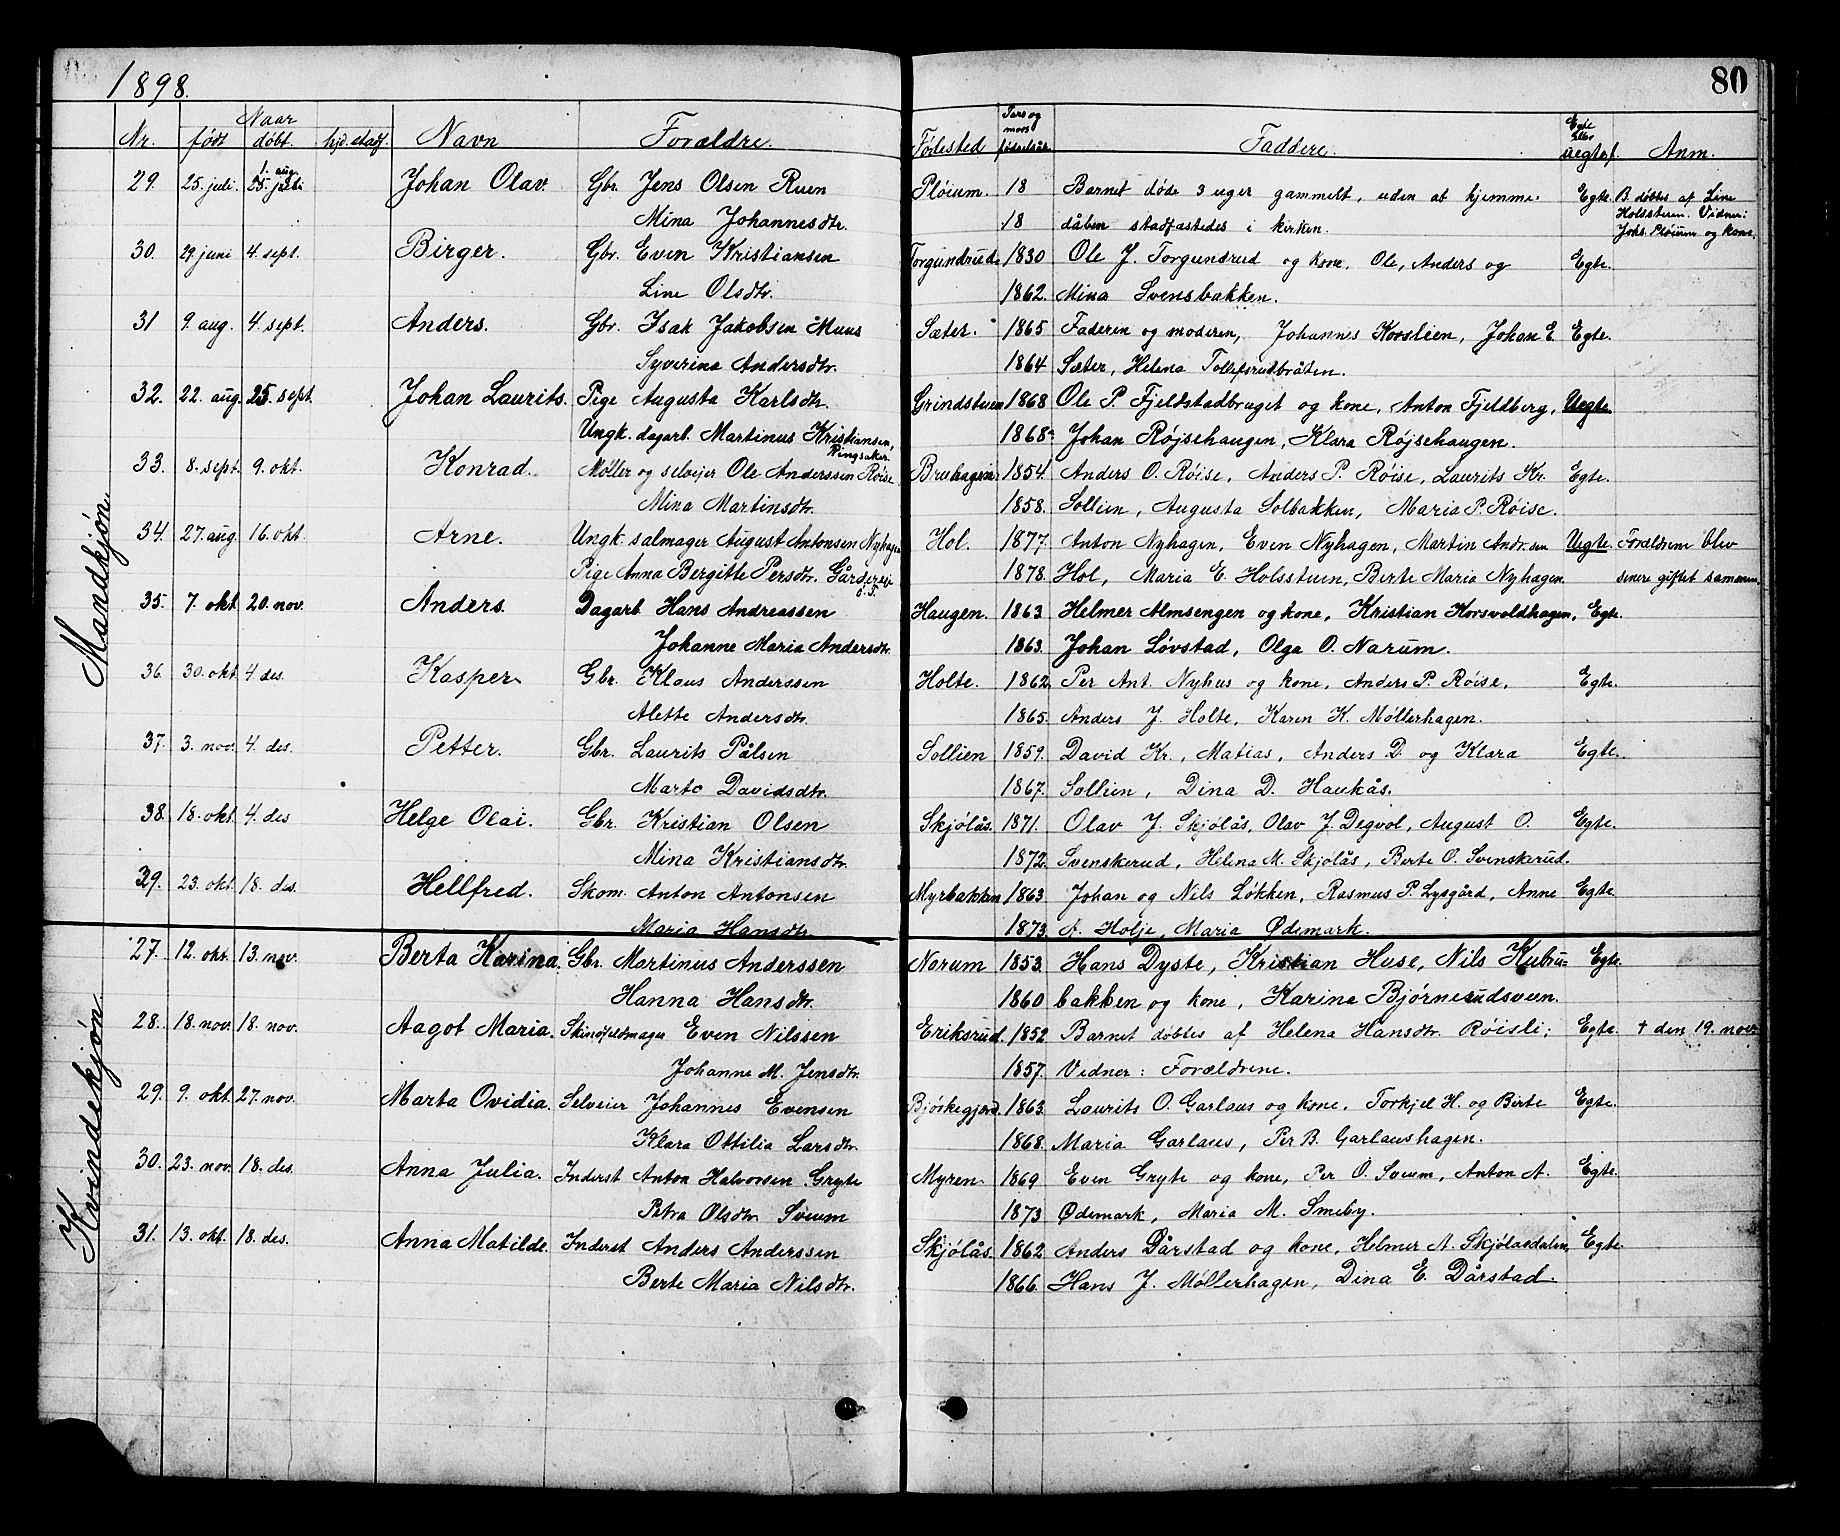 1898.
80
Nr. Naar født døbt. hjd. stadf. Navn Forældre. Fødested Fars og mors fødselsår Faddere. Egte eller uegte f. Anm.
Mandkjøn
29. 25. juli. 1. aug. 25. juli Johan Olav. Gbr. Jens Olsen Ruen Pløium. 18 Barnet døde 3 uger gammelt, uden at hjemme- Egte. B. døbtes af Line
Mina Johannesdtr. 18 dåben stadfæstedes i kirken. Holssteen. Vidner:
Johs. Pløium og kone.
30. 29. juni 4. sept. Birger. Gbr. Even Kristiansen Torgundrud. 1830 Ole J. Torgundrud og kone. Ole, Anders og Egte.
Line Olsdtr. 1862. Mina Svensbakken.
31 9. aug. 4. sept. Anders. Gbr. Isak Jakobsen Muus Sæter. 1865 Faderen og moderen, Johannes Korslien, Johan E. Egte.
Syverina Andersdtr. 1864 Sæter, Helena Tollefsrudbråten.
32. 22. aug. 25. sept. Johan Laurits. Pige Augusta Karlsdtr. Grindstuen 1868 Ole P. Fjeldstadbruget og kone, Anton Fjeldberg, Uegte
Ungk. dagarb. Martinus Kristiansen, Ringsaker. 1868. Johan Røjsehaugen, Klara Røjsehaugen.
33. 8. sept. 9. okt. Konrad. Møller og selvejer Ole Anderssen Røise Bruhagen 1854. Anders O. Røise, Anders P. Røise, Laurits Kr. Egte.
Mina Martinsdtr. 1858. Sollien, Augusta Solbakken, Maria P. Røise.
34. 27. aug. 16. okt. Arne. Ungk. salmager August Antonsen Nyhagen Hol. 1877. Anton Nyhagen, Even Nyhagen, Martin Andr.sen Uegte. Forældrene blev
Pige Anna Bergitte Persdtr. 1878. Hol, Maria E. Holssteen, Berte Maria Nyhagen. senere giftet sammen.
35. 7. okt. 20. nov. Anders. Dagarb. Hans Andreassen Haugen. 1863 Helmer Almsengen og kone, Kristian Korsvoldhagen, Egte.
Johanne Maria Andersdtr. 1863. Johan Løvstad, Olga O. Narum.
36. 30. okt. 4. des. Kasper. Gbr. Klaus Anderssen Holte. 1862 Per Ant. Nyhus og kone, Anders P. Røise, Egte.
Alette Andersdtr. 1865. Anders J. Holte, Karen K. Møllerhagen.
37. 3. nov. 4. des. Petter. Gbr. Laurits Pålsen Sollien 1859. David Kr., Matias, Anders D. og Klara Egte.
Marte Davidsdtr. 1867. Sollien, Dina D. Haukås.
38. 18. okt. 4. des Helge Olai. Gbr. Kristian Olsen Skjølås. 1871. Olav J. Skjølås, Olav J. Degvol, August O. Egte.
Mina Kristiansdtr. 1872. Svenskerud, Helena M. Skjølås, Berte O. Svenskerud.
39. 23. okt. 18. des. Hellfred. Skom. Anton Antonsen Myrbakken 1863 Johan og Nils Løkken, Rasmus P. Lysgård, Anne Egte.
Maria Hansdtr. 1873. A. Holje, Maria Ødemark.
Kvindekjøn
27. 12. okt. 13. nov. Berta Karina. Gbr. Martinus Anderssen Narum 1853. Hans Dyste, Kristian Huse, Nils Kubru= Egte.
Hanna Hansdtr. 1860 bakken og kone, Karina Bjørnerudsveen.
28. 18. nov. 18. nov. Aagot Maria. Skindfeldmager Even Nilssen Eriksrud. 1852 Barnet døbtes af Helena Hansdtr. Røisli; Egte. † den 19. nov.
Johanne M. Jensdtr. 1857. Vidner: Forældrene.
29. 9. okt. 27. nov. Marta Ovidia. Selveier Johannes Evensen Bjørkegjerd. 1863. Laurits O. Garlaus og kone, Torkjel H. og Berte Egte.
Klara Ottilia Larsdtr. 1868. Maria Garlaus, Per B. Garlaushagen.
30. 23. nov. 18. des. Anna Julia. Inderst Anton Halvorsen Gryte Myren. 1869 Even Gryte og kone, Per O. Sveum, Anton A. Egte.
Petra Olsdtr. Sveum 1873 Ødemark, Maria M. Smeby.
31. 13. okt. 18. des. Anna Matilde. Inderst Anders Anderssen Skjølås. 1862 Anders Dårstad og kone, Helmer A. Skjølåsdalen, Egte
Berte Maria Nilsdtr. 1866. Hans J. Møllerhagen, Dina E. Dårstad.